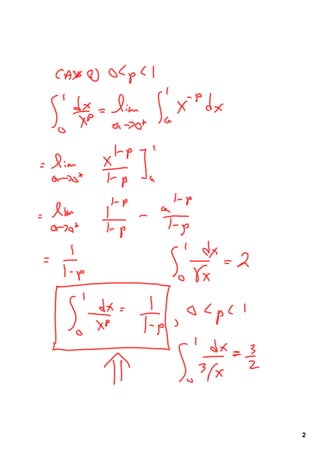 CASE 2) 0<p<1
∫₀¹ dx/x^p = lim_{a→0⁺} ∫ₐ¹ x^{-p} dx
= lim_{a→0⁺} x^{1-p}/(1-p) ]ₐ¹
= lim_{a→0⁺} 1^{1-p}/(1-p) - a^{1-p}/(1-p)
= 1/(1-p)
∫₀¹ dx/√x = 2
∫₀¹ dx/x^p = 1/(1-p), 0<p<1
⇑
∫₀¹ dx/³√x = 3/2
2